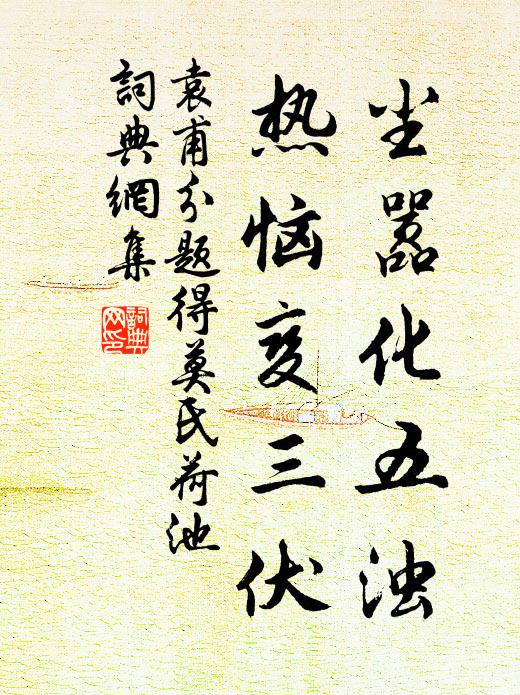 尘嚣化五浊
热恼变三伏
袁甫分题得莫氏荷池
詞典網集
詞典
网印